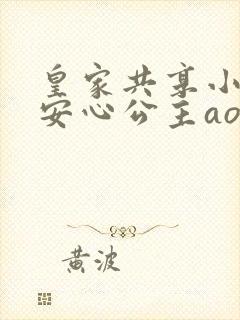 皇家共享小
安心公主ao
黄波